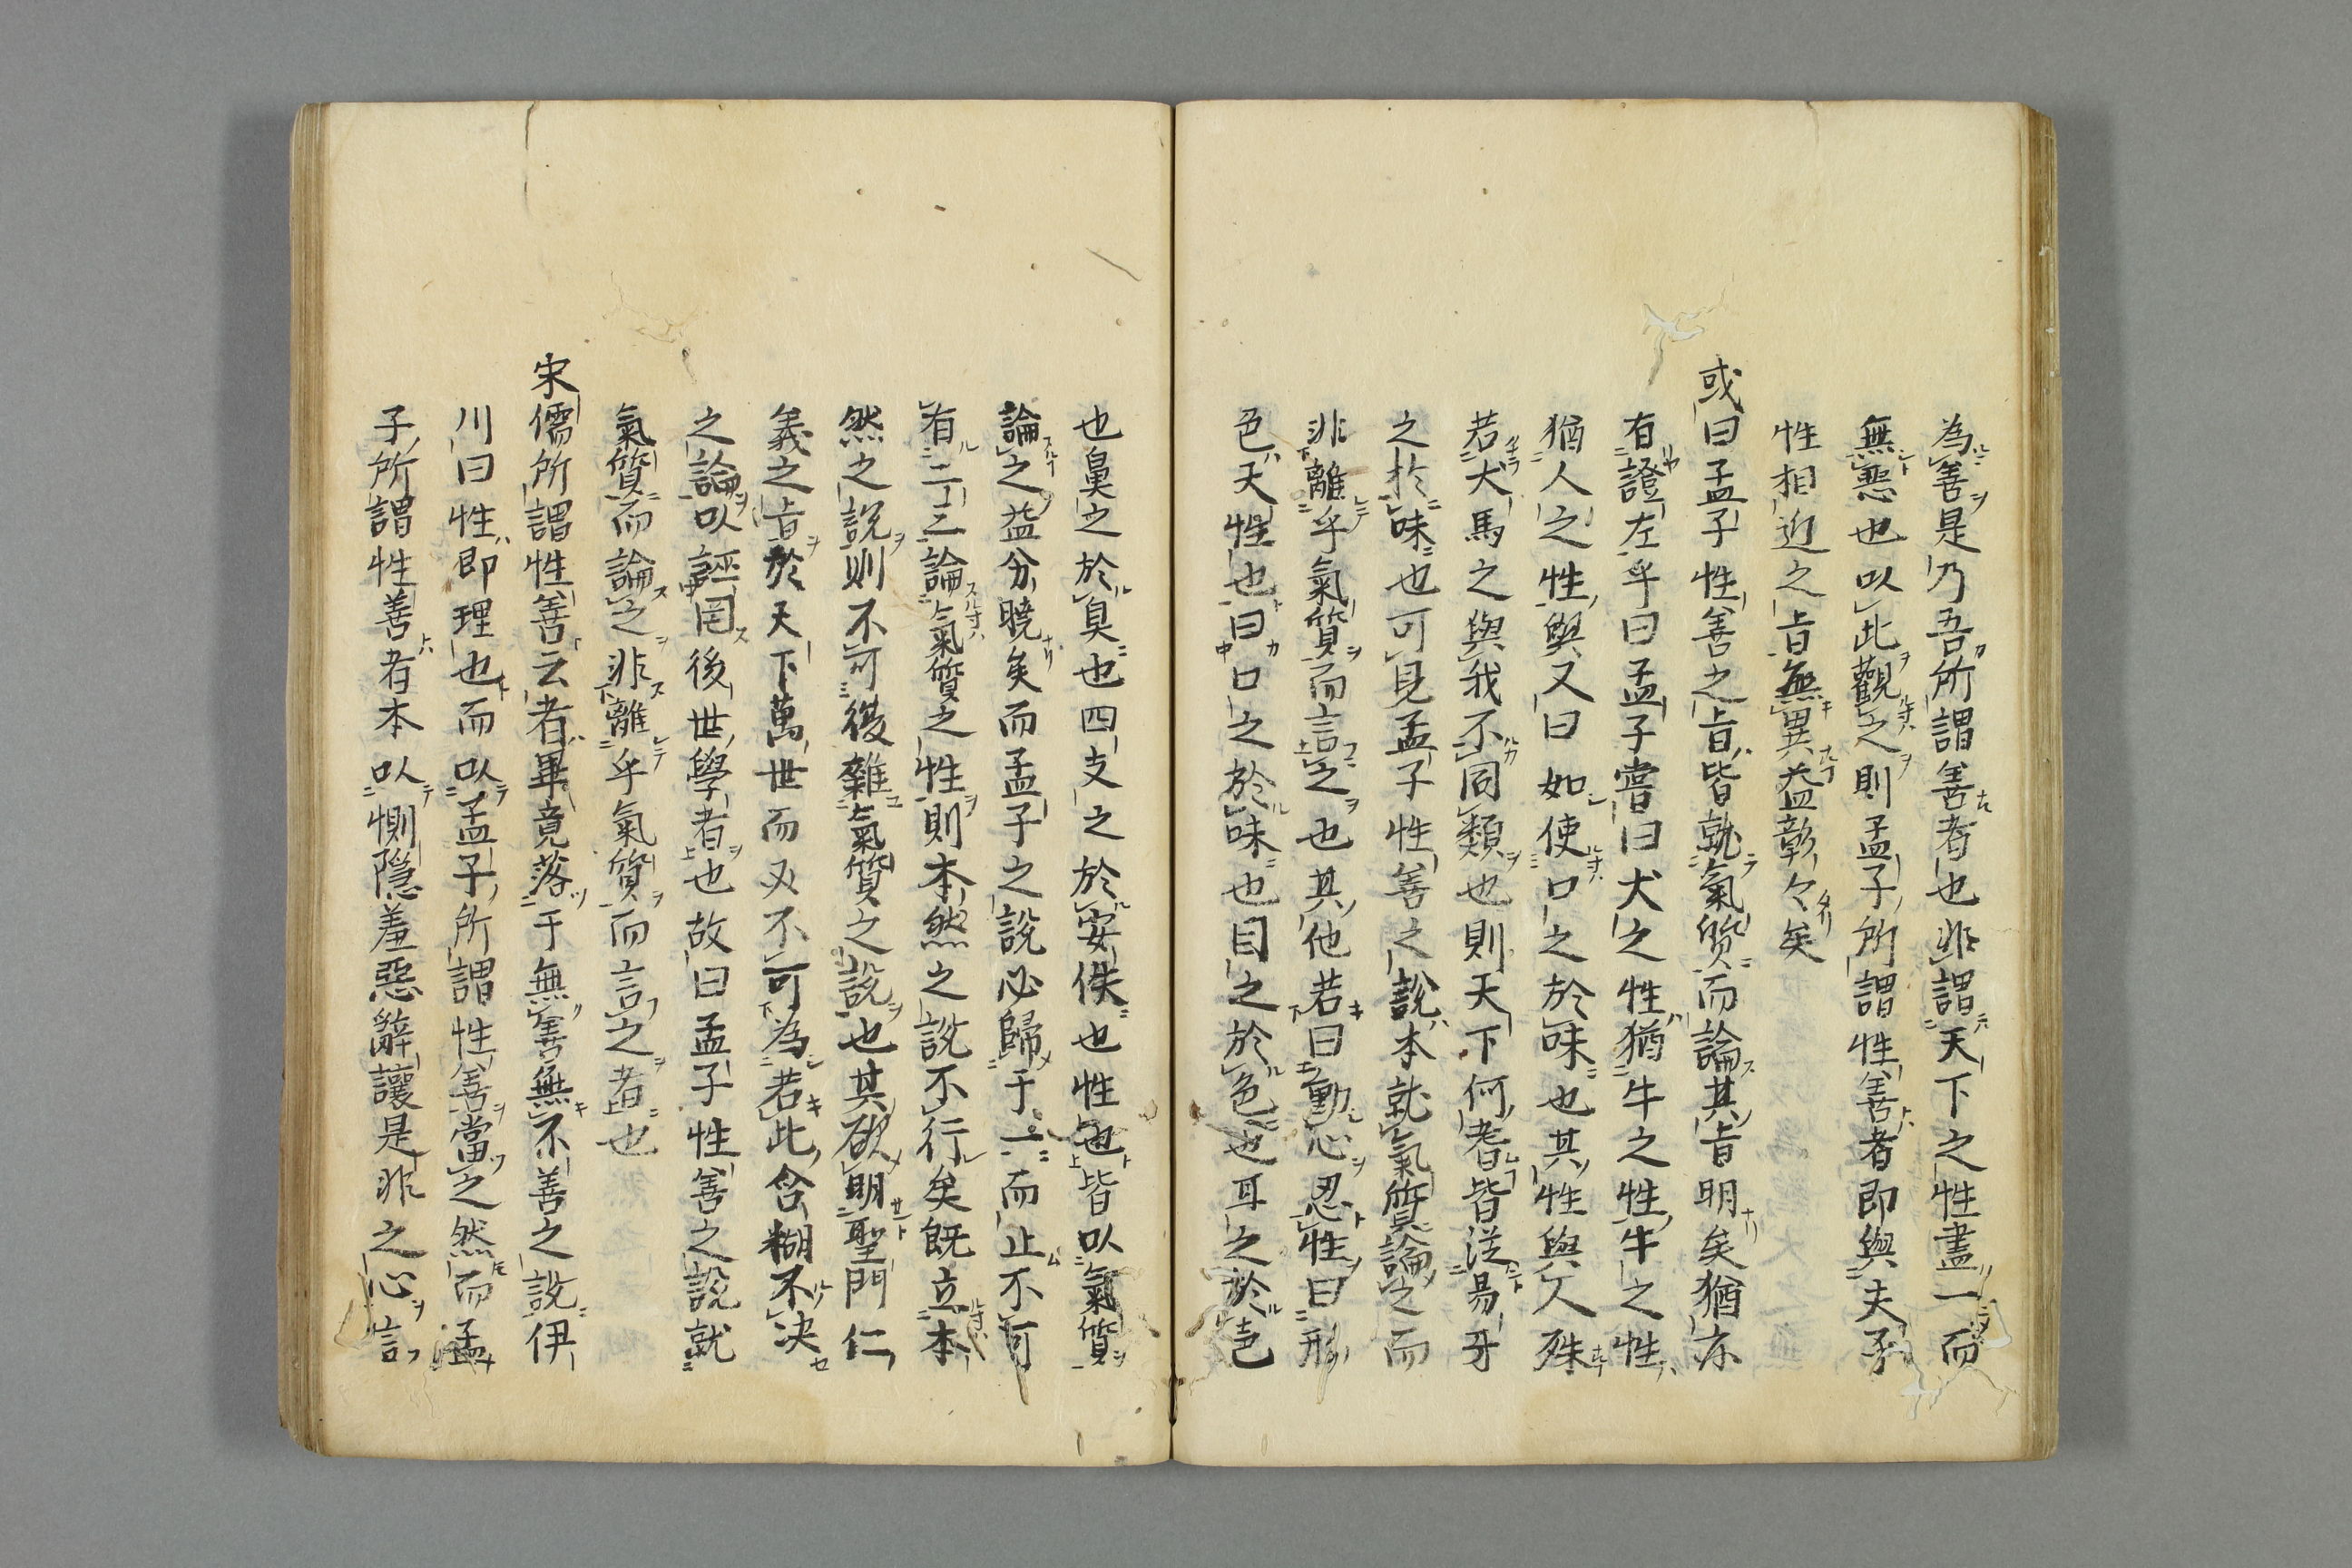 為善是乃吾所謂善者也非謂天下之性盡一而
無惡也以此觀之則孟子所謂性善者即與夫子
性相近之旨無異益彰々矣
或曰孟子性善之旨皆就氣質而論其旨明矣猶亦
有證左乎曰孟子嘗曰犬之性猶牛之性牛之性
猶人之性與又曰如使口之於味也其性與人殊
若犬馬之與我不同類也則天下何耆皆從易牙
之於味也可見孟子性善之說本就氣質論之而
非離乎氣質而言之也其他若曰動心忍性曰形
色天性也曰口之於味也目之於色也耳之於色
也鼻之於臭也四支之於安佚也性也皆以氣質
論之益分曉矣而孟子之說必歸于一而止不可
有二了三論氣質之性則本然之說不行矣既立本
然之說則不可復雜氣質之說也其欲明聖門仁
義之旨於天下萬世而又不可為若此含糊不决
之論以誣罔後世學者也故曰孟子性善之說就
氣質而論之非離乎氣質而言之者也
宋儒所謂性善云者畢竟落于無善無不善之說伊
川曰性即理也而以孟子所謂性善當之然而孟
子所謂性善者本以惻隠羞惡辭讓是非之心言